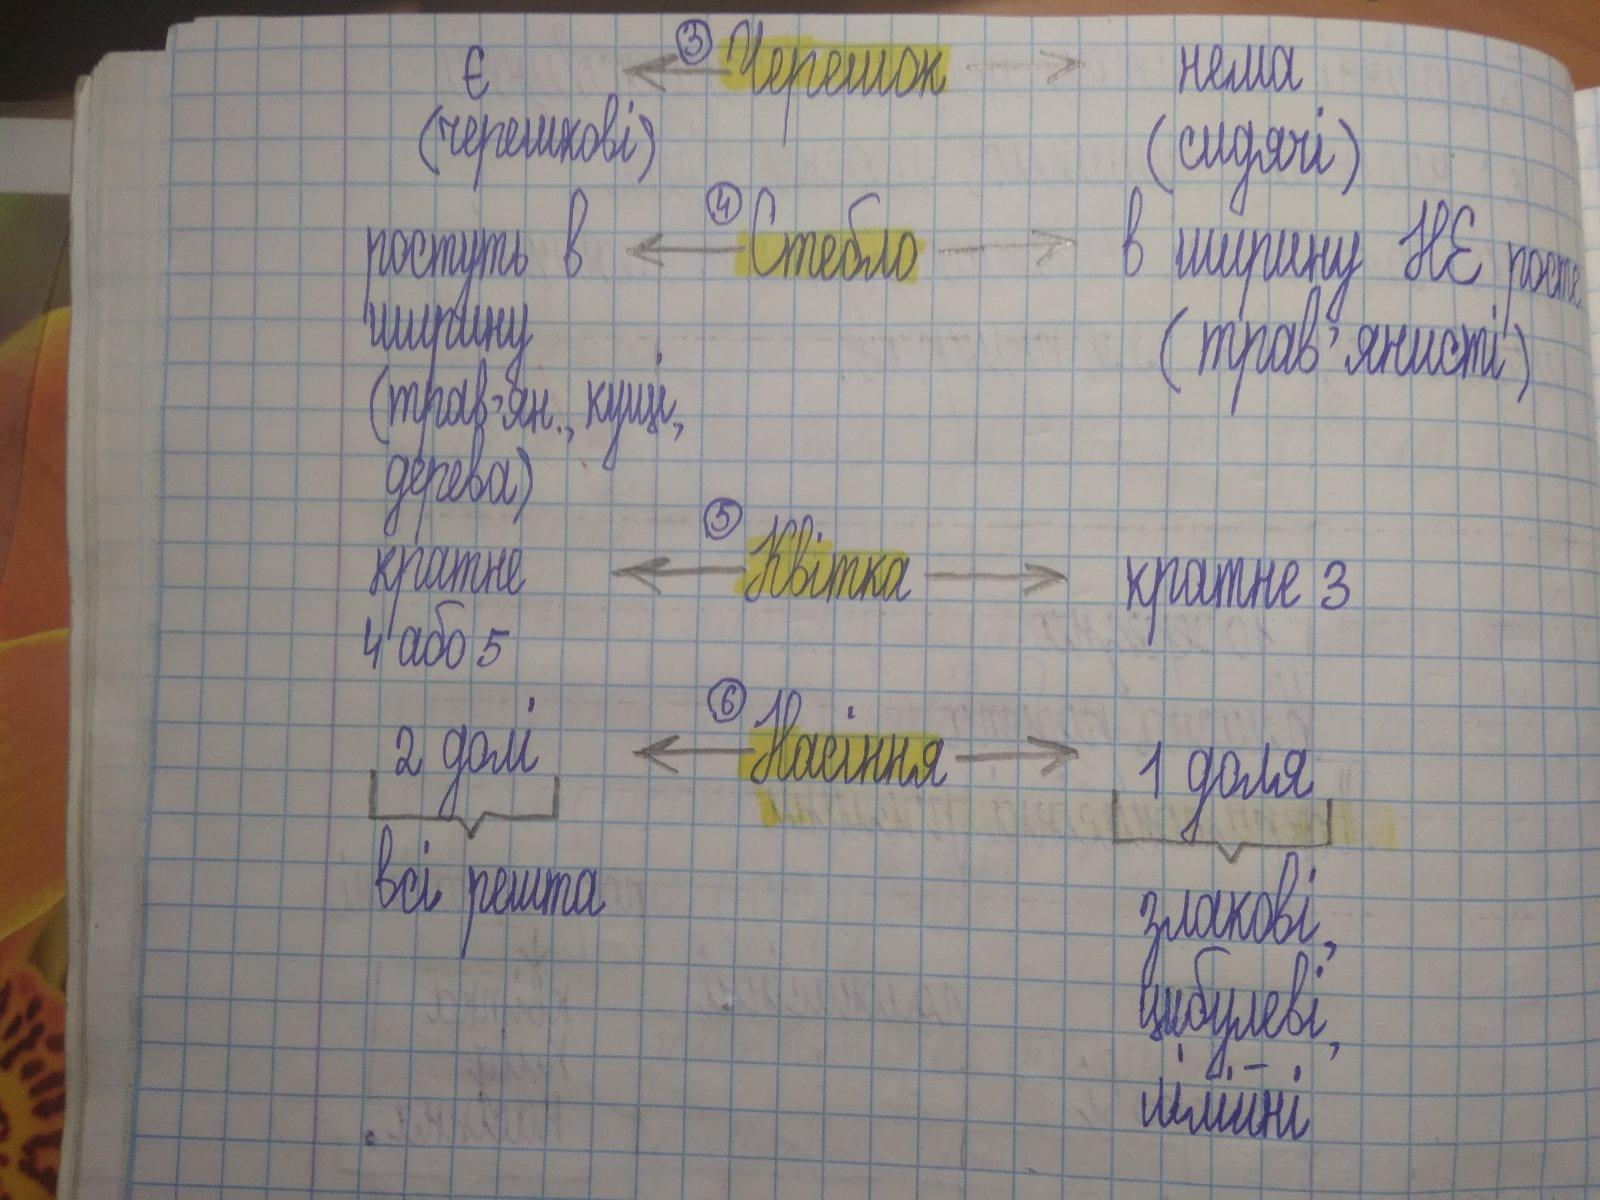 є ③ Черешок нема
(черешкові) (сидячі)
④
ростуть в Стебло в ширину НЕ росте
ширину (трав'янисті)
(трав'ян., кущі,
дерева)
⑤
кратне Квітка кратне 3
4 або 5
⑥
2 долі Насіння 1 доля
всі решта злакові,
цибулеві,
лілійні